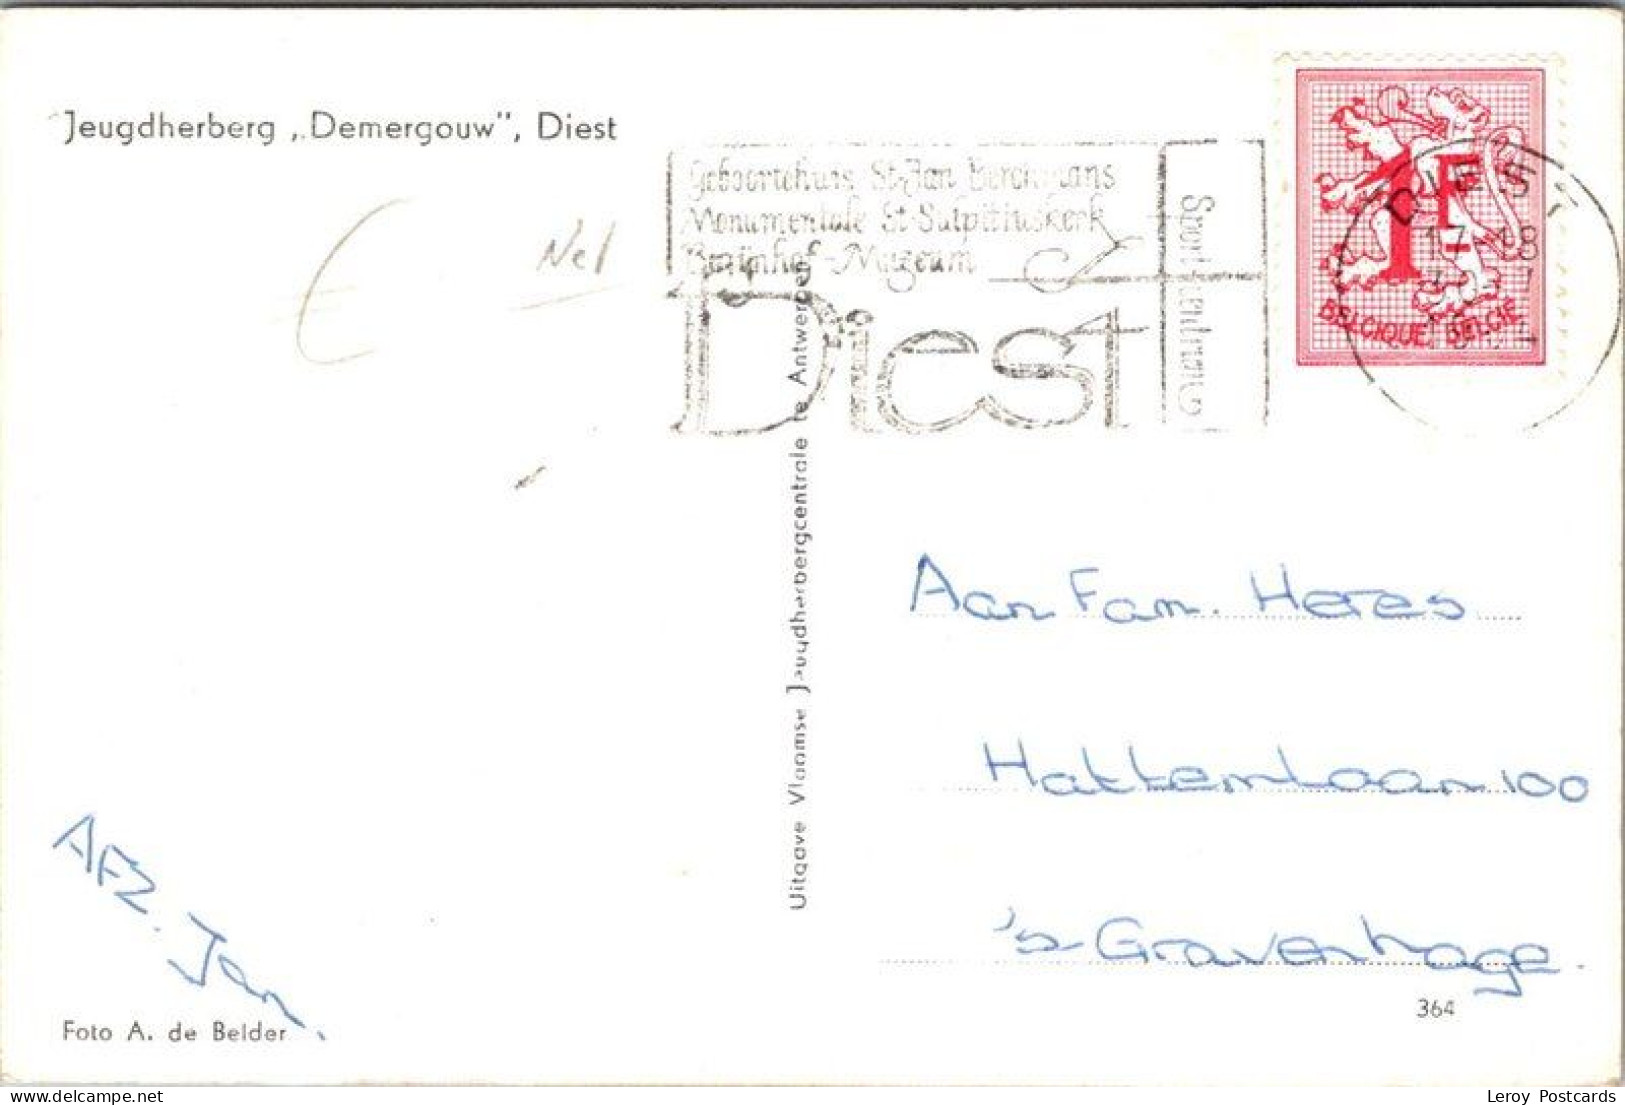 Jeugdherberg „Demergouw", Diest
Geboortehuis St-Jan Berchmans
Monumentale St Sulpitiuskerk
Begijnhof-Museum
Diest
1F
BELGIQUE BELGIE
DIEST
17-18
Nel
Uitgave Vlaamse Jeugdherbergcentrale te Antwerpen
Aan Fam. Heres
Hattemlaan 100
's-Gravenhage.
AFZ. Jan.
Foto A. de Belder
364
Leroy Postcards